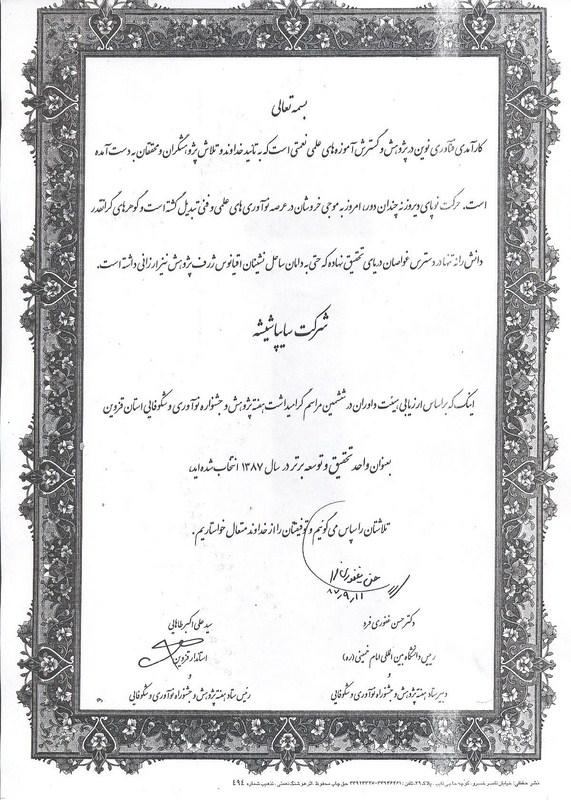 بسمه تعالی
کارآمدی فنآوری نوین در پژوهش و گسترش آموزه های علمی نعمتی است که به تائید خداوند و تلاش پژوهشگران و محققان به دست آمده
است. حرکت نوپای دیروز نه چندان دور، امروز به موجی خروشان در عرصه نوآوری های علمی و فنی تبدیل گشته است و گوهرهای گرانقدر
دانش را نه تنها در دسترس غواصان دریای تحقیق نهاده که حتی به دامان ساحل نشینان اقیانوس ژرف پژوهش نیز ارزانی داشته است.
شرکت سایپا شیشه
اینک که بر اساس ارزیابی هیئت داوران در ششمین مراسم گرامیداشت هفته پژوهش و جشنواره نوآوری و شکوفایی استان قزوین
بعنوان واحد تحقیق و توسعه برتر در سال ۱۳۸۷ انتخاب شده اید،
تلاشتان را سپاس می گوئیم و توفیقتان را از خداوند متعال خواستاریم.
۸۷٫۹٫۱۱
دکتر حسن غفوری فرد
رئیس دانشگاه بین المللی امام خمینی (ره)
و
دبیر ستاد هفته پژوهش و جشنواره نوآوری و شکوفایی
سید علی اکبر طاهایی
استاندار قزوین
و
رئیس ستاد هفته پژوهش و جشنواره نوآوری و شکوفایی
نشر حقانی: خیابان ناصر خسرو، کوچه حاجی نایب، پلاک ۲۹، تلفن: ۳۳۹۴۶۴۶۱-۳۳۹۲۳۳۲۷ حق چاپ محفوظ، اثر هوشنگ نعمتی، تذهیب شماره ۴۹۴